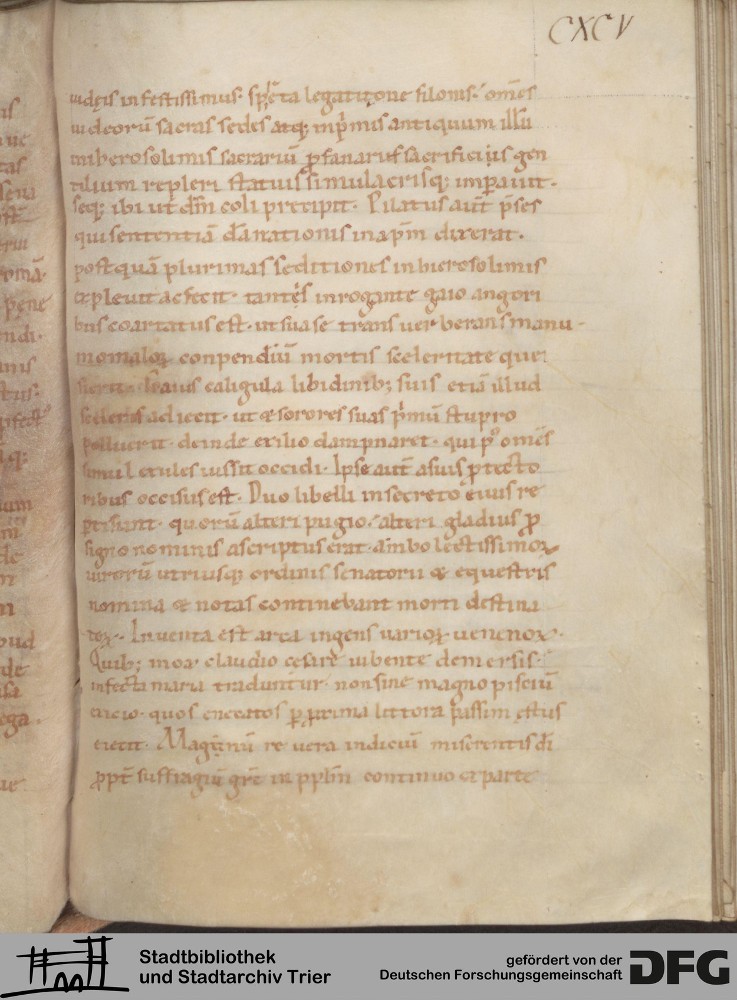 CXCV
iudęis infestissimus. spreta legatione filonis. omēs
iudeorū sacras sedes atq; inp'mis antiquum illū
inhierosolimis sacrariū ꝓfanari sacrificiis gen
tilium repleri statuis simulacrisq; imꝑauit.
seq; ibi ut dm̄ coli precipit. Pilatus aut̄ p̄ses
qui sententiā dānationis inxp̄m dixerat.
postquā plurimas seditiones inhierosolimis
excepit ac fecit. tantis inrogante gaio angori
bus coartatus est. ut sua se transuerberans manu
conpendiū mortis sceleritate que
sierit. Gaius caligula libidinib; suis etiā illud
sceleris adiecit. ut & sorores suas p'mū stupro
pollueret. deinde exilio dampnaret. qui p' omēs
simul exules iussit occidi. Ipse aut̄ asuis ꝓtecto
ribus occisus est. Duo libelli insecreto eius re
ꝑti sunt. quorū alteri pugio. alteri gladius ꝓ
signo nominis ascriptus erat. ambo lectissimoꝝ
uirorū utriusq; ordinis senatorii & equestris
nomina & notas continebant morti destina
toꝝ. Inuenta est arca ingens uarioꝝ uenenoꝝ.
Quib; mox claudio cesare iubente demersis.
infecta maria traduntur. non sine magno pisciū
exicio. quos enectos ꝑ proxima littora passim ęstus
eiecit. Magnum re uera indiciū miserentis dī
ꝓpt̄ suffragiū gr̄e in ppl̄m continuo ex parte
Stadtbibliothek
und Stadtarchiv Trier
gefördert von der
Deutschen Forschungsgemeinschaft
DFG